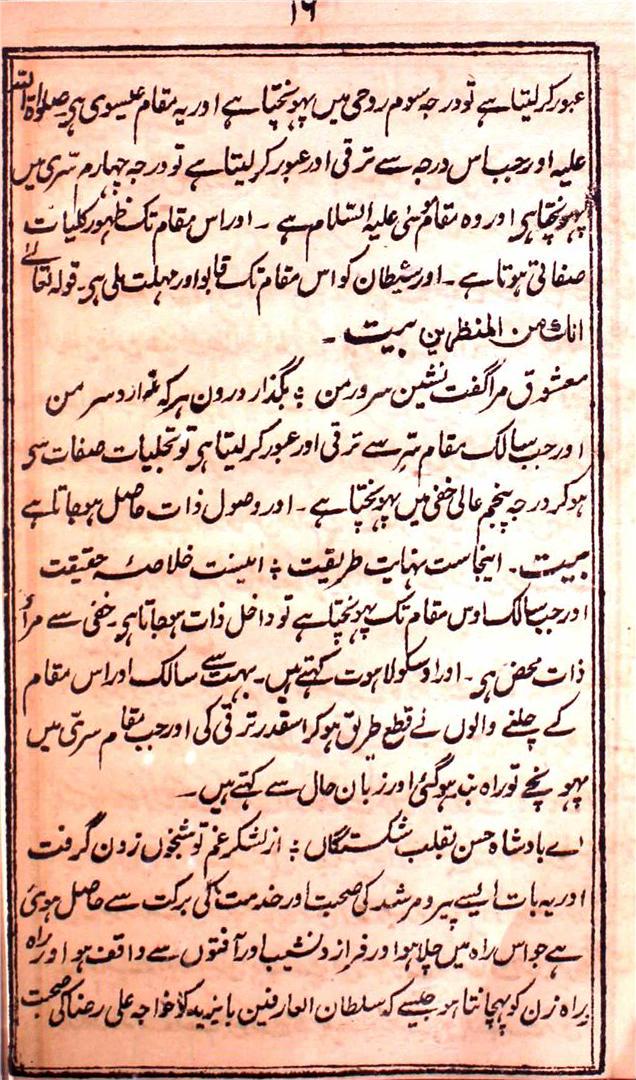 ۱۶
عبور کر لیتا ہے تو درجہ سوم روحی میں پہونچتا ہے اور یہ مقام عیسوی ہی صلوٰۃ اللہ
علیہ اور جب اس درجہ سے ترقی اور عبور کر لیتا ہے تو درجہ چہارم سرّی میں
پہونچتا ہی اور وہ مقام موسیٰ علیہ السّلام ہے ۔ اور اس مقام تک ظہور کلیات
صفاتی ہوتا ہے ۔ اور شیطان کو اس مقام تک قابو اور مہلت ملی ہی ۔ قولہ تعالےٰ
انك من المنظرین بیت ۔
معشوق مرا گفت نشین سر ور من ؛ بگذار درون ہر کہ ندارد سر من
اور جب سالک مقام سّر سے ترقی اور عبور کر لیتا ہی تو تجلیات صفات سی
ہو کر درجہ پنجم عالی خفی میں پہونچتا ہے ۔ اور وصول ذات حاصل ہو جاتا ہے
بیت ۔ اینجاست نہایت طریقت ؛ اینست خلاصۂ حقیقت
اور جب سالک اوس مقام تک پہونچتا ہے تو داخل ذات ہو جاتا ہی ۔ خفی سے مراد
ذات محض ہی ۔ اور اوسکو لاہوت کہتے ہیں ۔ بہت سے سالک اور اس مقام
کے چلنے والوں نے قطع طریق ہو کر اسقدر ترقی کی اور جب مقام سرّی میں
پہونچے تو راہ بند ہو گئی اور زبان حال سے کہتے ہیں ۔
اے بادشاہ حسن بقلب شکستگاں ؛ از لشکر غم تو شبخوں زدن گرفت
اور یہ بات ایسے پیر و مرشد کی صحبت اور خدمت کی برکت سے حاصل ہوئی
ہے جو اس راہ میں چلا ہو اور فراز و نشیب اور آفتوں سے واقف ہو اور راہ
براہ زن کو پہچانتا ہو جیسے کہ سلطان العارفین بایزید کو خواجہ علی رضا کی صحبت